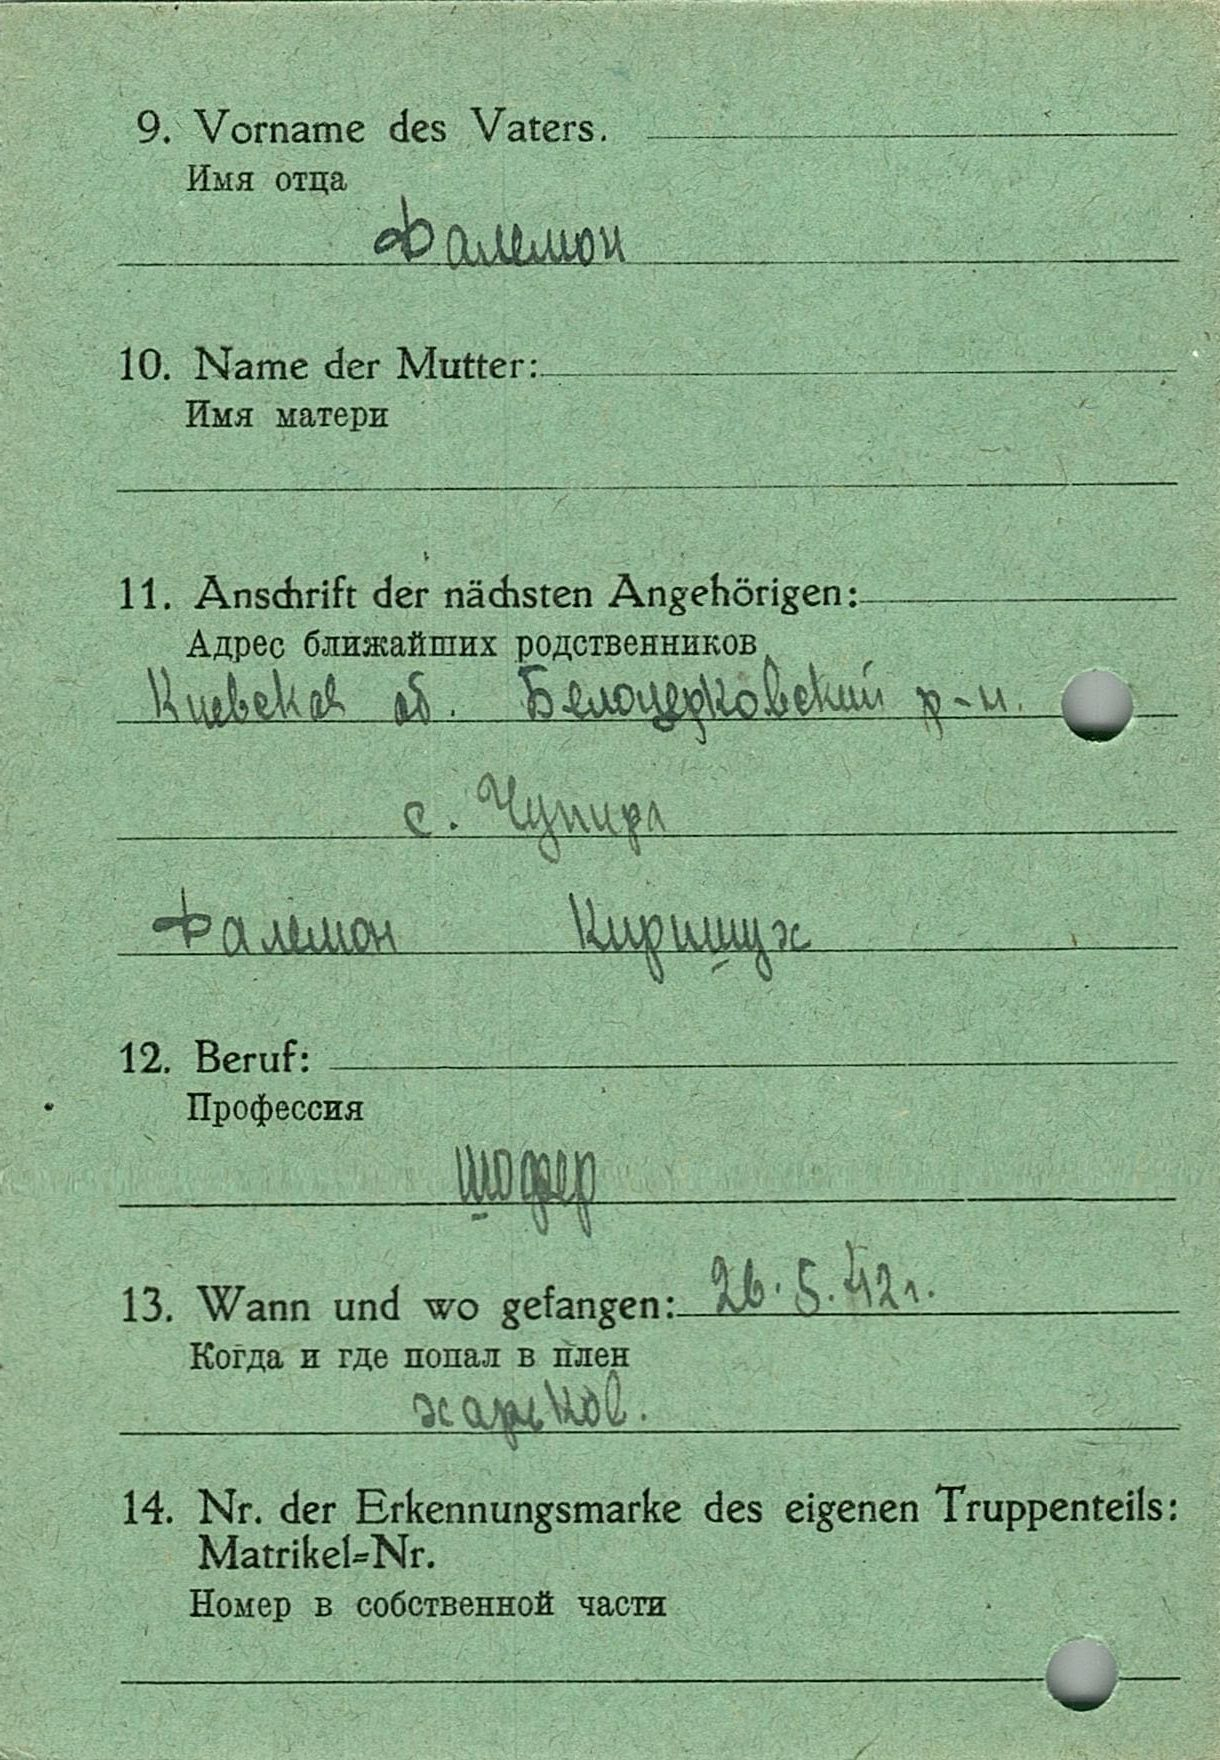 9. Vorname des Vaters.
Имя отца
Фалемон
10. Name der Mutter:
Имя матери
11. Anschrift der nächsten Angehörigen:
Адрес ближайших родственников
Киевская об. Белоцерковский р-н.
с. Чупира
Фалемон Киришух
12. Beruf:
Профессия
шофер
13. Wann und wo gefangen: 26.5.42г.
Когда и где попал в плен
харьков.
14. Nr. der Erkennungsmarke des eigenen Truppenteils:
Matrikel=Nr.
Номер в собственной части